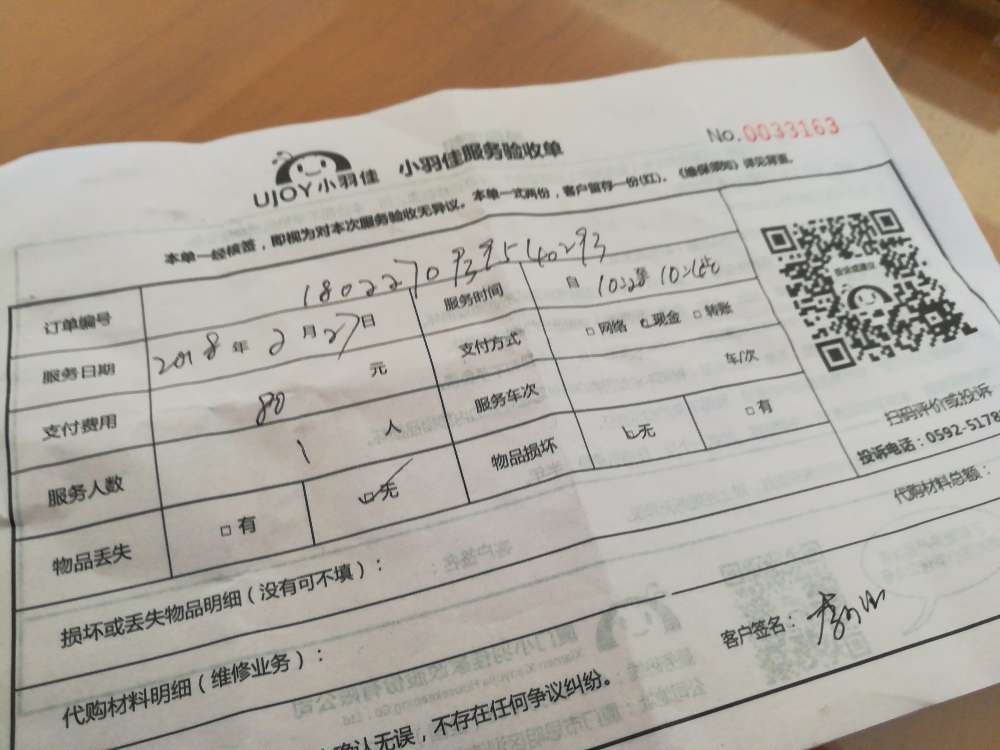 No.0033163
UJOY小羽佳 小羽佳服务验收单
本单一经核签，即视为对本次服务验收无异议。本单一式两份，客户留存一份(红)。《维保须知》详见背面。
订单编号
服务日期 2018年2月27日 服务时间 自
支付费用 80 元 支付方式 □网络 现金 □转账
服务人数 1 人 服务车次 车/次
物品丢失 □有 □无 物品损坏 □无 □有
扫码评价或投诉
投诉电话：0592-5178
损坏或丢失物品明细（没有可不填）：
代购材料总额：
代购材料明细（维修业务）：
客户签名：
确认无误，不存在任何争议纠纷。